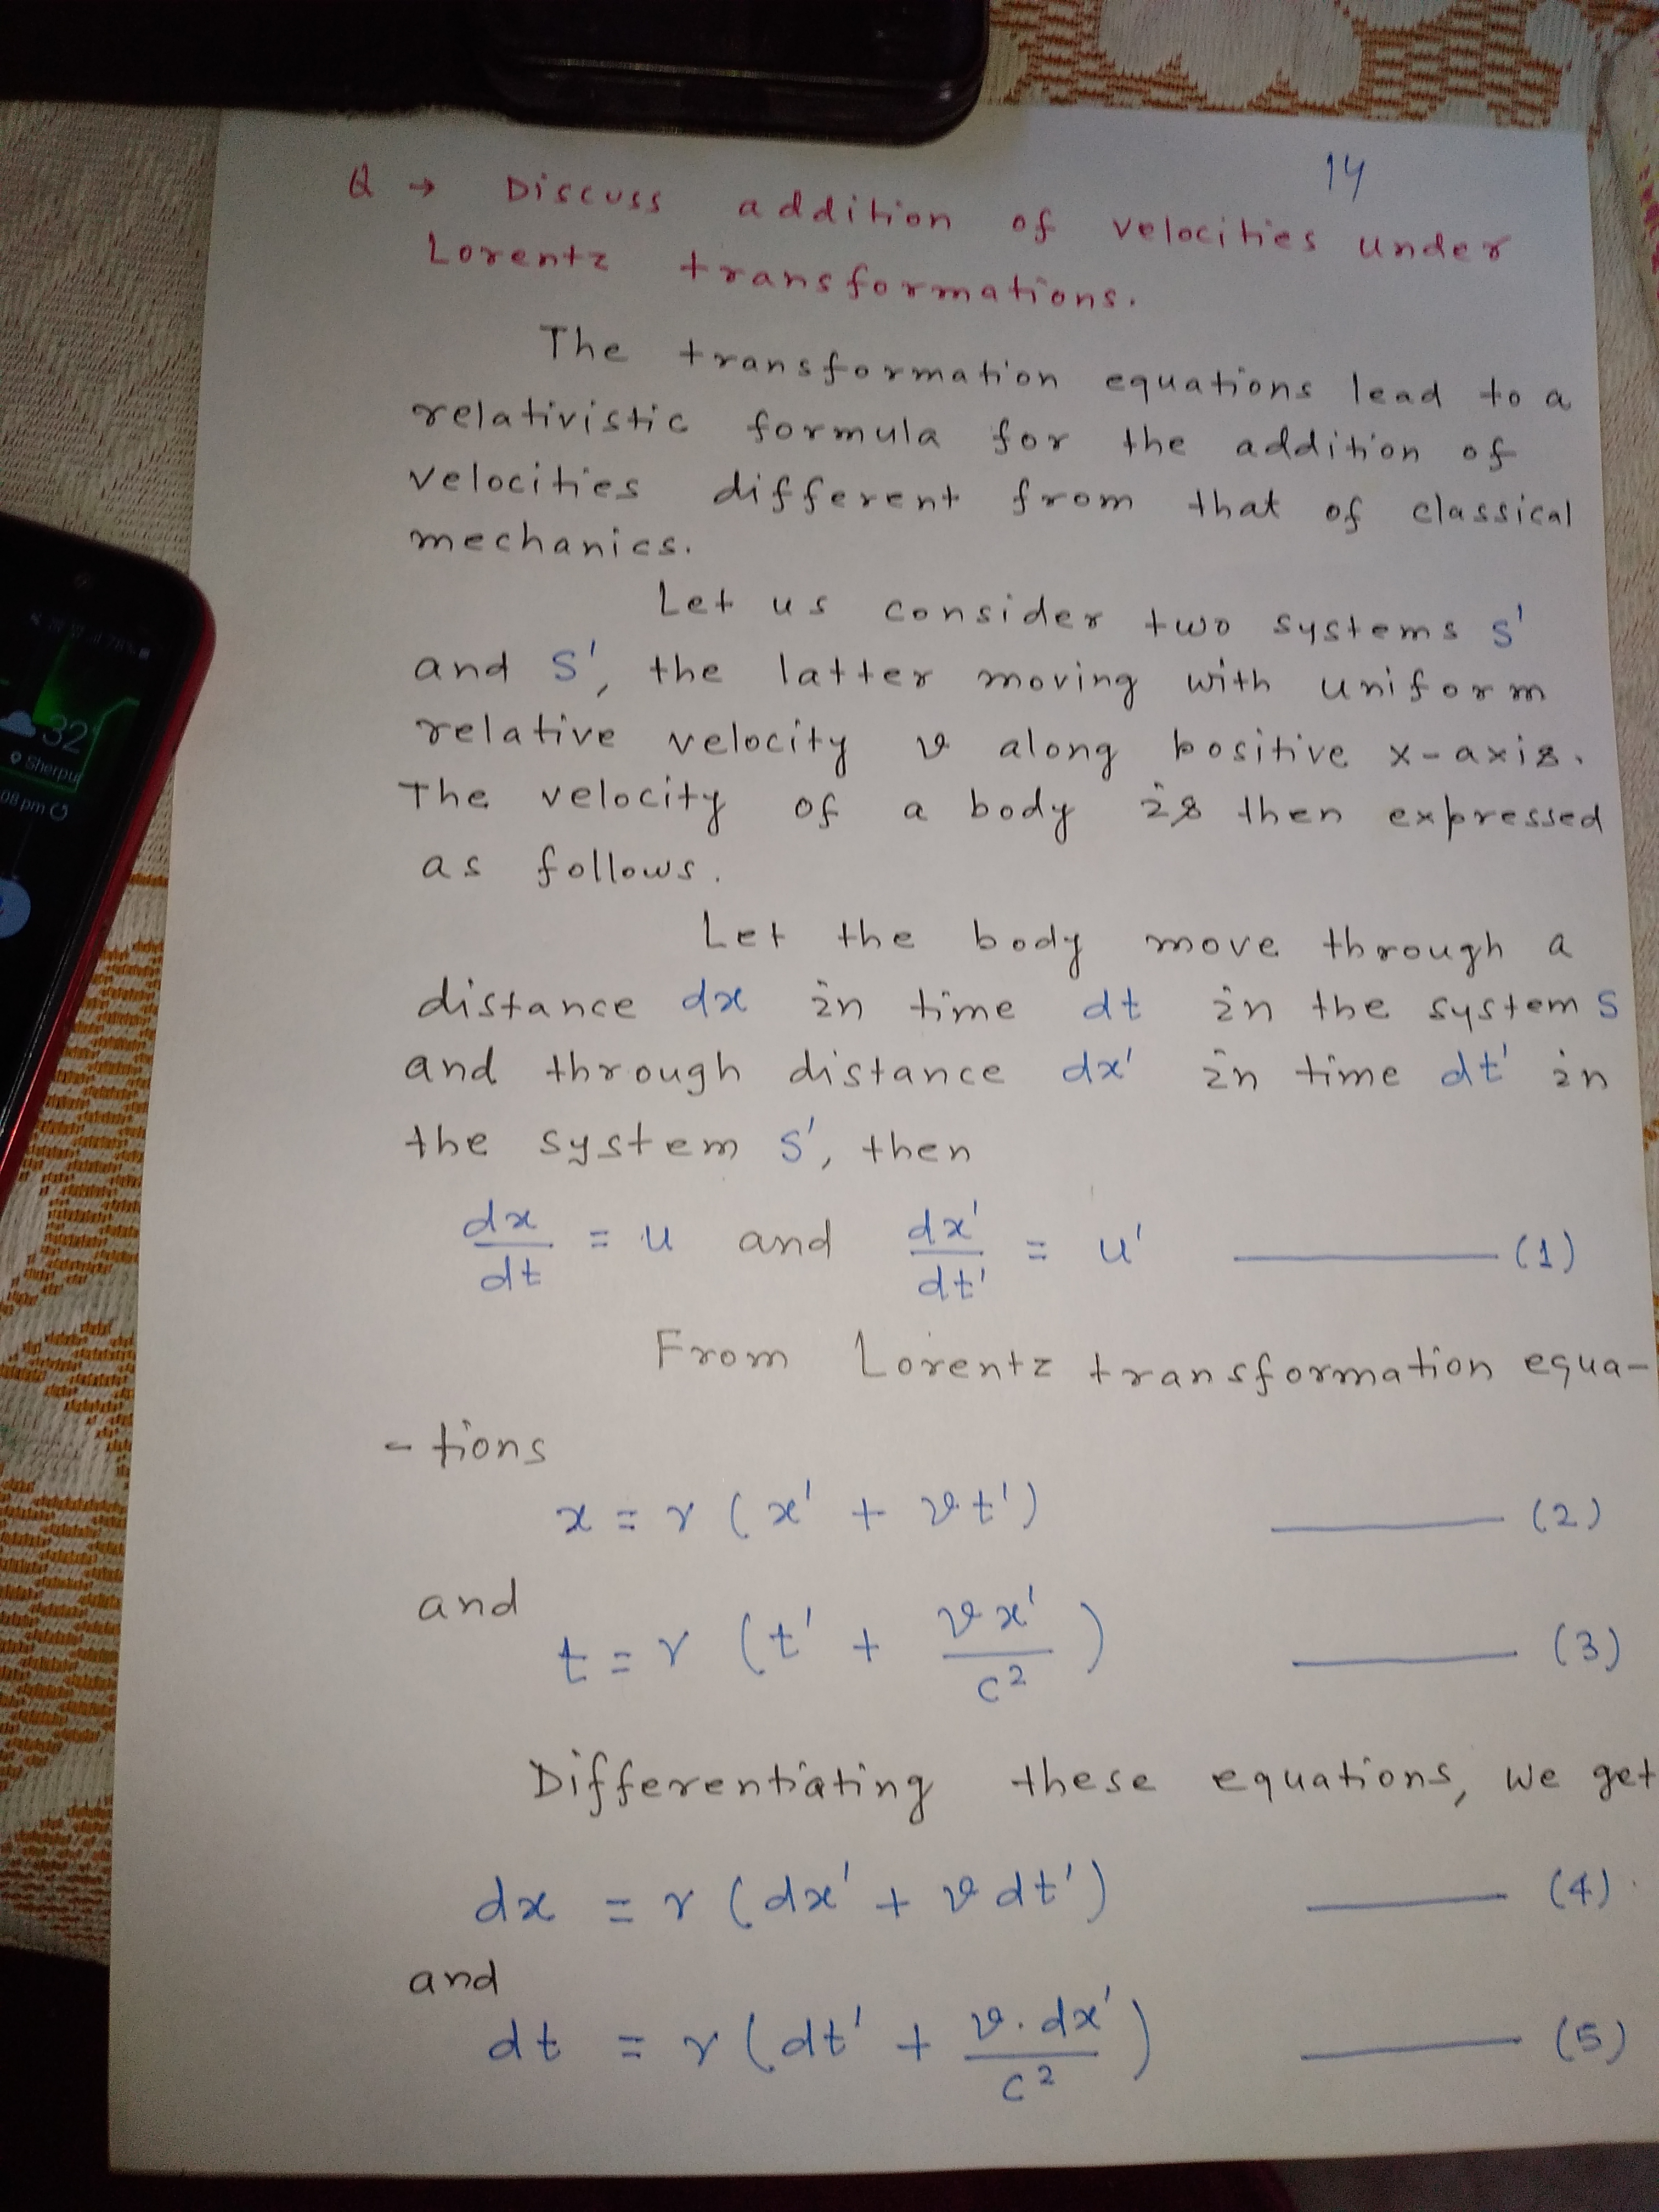 14
Q → Discuss addition of velocities under
Lorentz transformations.
The transformation equations lead to a
relativistic formula for the addition of
velocities different from that of classical
mechanics.
Let us consider two systems S'
and S', the latter moving with uniform
relative velocity v along positive x-axis.
The velocity of a body is then expressed
as follows.
Let the body move through a
distance dx in time dt in the system S
and through distance dx' in time dt' in
the system S', then
dx/dt = u and dx'/dt' = u' ——— (1)
From Lorentz transformation equa-
-tions
x = γ (x' + vt') ——— (2)
and
t = γ (t' + vx'/c²) ——— (3)
Differentiating these equations, we get
dx = γ (dx' + v dt') ——— (4)
and
dt = γ (dt' + v.dx'/c²) ——— (5)
78%
32
Sherpu
08 pm